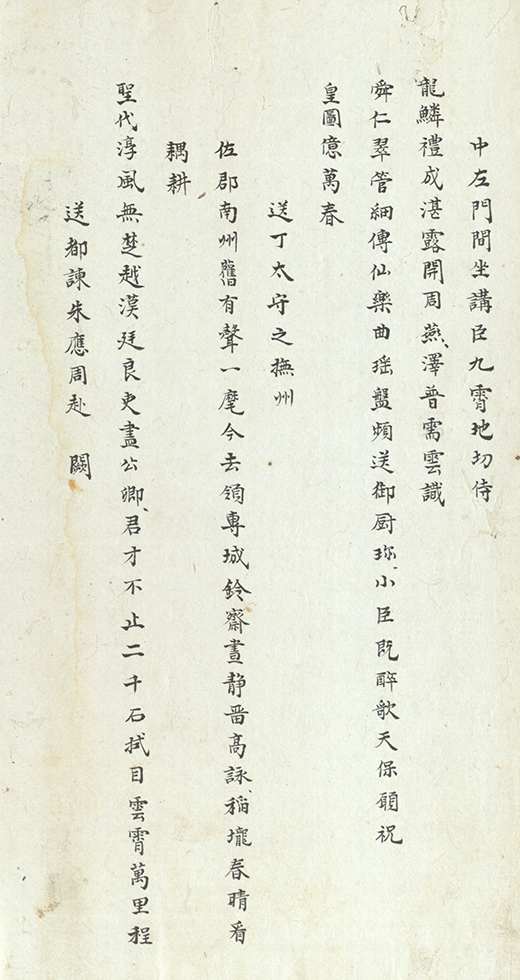 中左門間坐講臣九霄地切侍
龍鱗禮成湛露開周燕澤普需雲識
舜仁翠管細傳仙樂曲瑶盤頻送御厨珎小臣既醉歌天保願祝
皇圖億萬春
送丁太守之撫州
佐郡南州舊有聲一麾今去領專城鈴齋晝静畱高詠稲壠春晴看
耦耕
聖代淳風無楚越漢廷良吏盡公卿君才不止二千石拭目雲霄萬里程
送都諫朱應周赴 闕